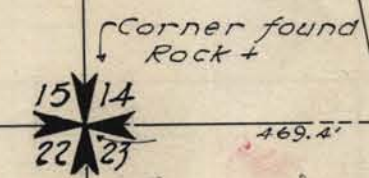 Corner found
Rock +
15 14
22 23
469.4'